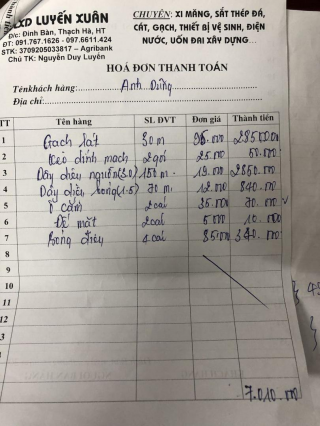 LXD LUYẾN XUÂN
Đ/c: Đình Bàn, Thạch Hà, HT
ĐT: 091.767.1626 - 097.6611.424
STK: 3709205033817 – Agribank
Chủ TK: Nguyễn Duy Luyến
CHUYÊN: XI MĂNG, SẮT THÉP ĐÁ,
CÁT, GẠCH, THIẾT BỊ VỆ SINH, ĐIỆN
NƯỚC, UỐN ĐAI XÂY DỰNG...
HOÁ ĐƠN THANH TOÁN
Tên khách hàng: Anh Dũng
Địa chỉ:
TT Tên hàng SL ĐVT Đơn giá Thành tiền
1 Gạch lát 30 m 95.000 2850000
2 Keo dính mạch 2 gói 25.000 50.000
3 Dây điện nguồn (3.0) 150 m 19.000 2850.000
4 Dây điện (1.5) 70 m 12.000 840.000
5 Ổ cắm 2 cái 35.000 70.000
6 Đế mặt 2 cái 5.000 10.000
7 Bóng điện 4 cái 85.000 340.000
8
9
10
11
12
7.010.000